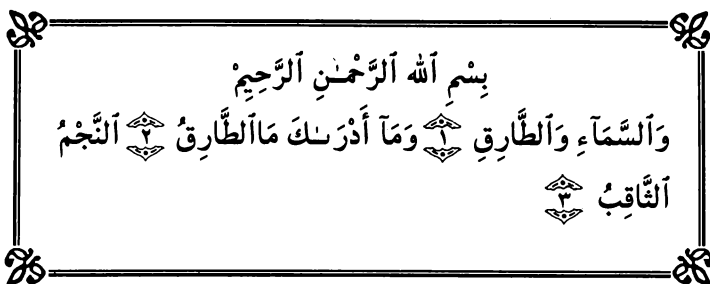 بِسْمِ ٱللَّه ٱلرَّحْمَـٰنِ ٱلرَّحِيمْ
وَٱلسَّمَآءِ وَٱلطَّارِقِ ١ وَمَآ أَدْرَىـٰكَ مَاٱلطَّارِقُ ٢ ٱلنَّجْمُ
ٱلثَّاقِبُ ٣